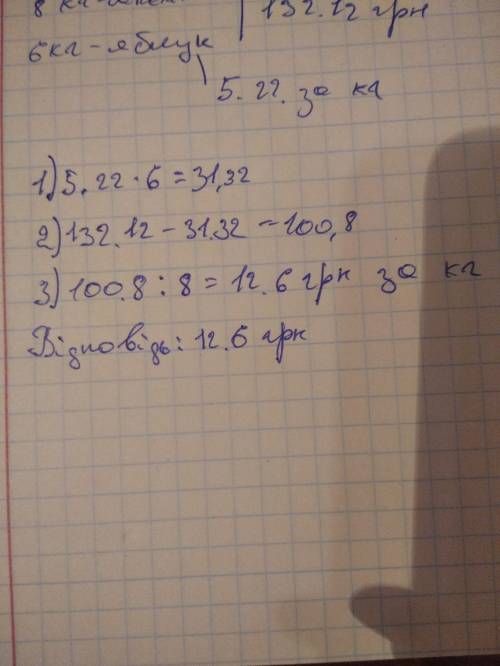 8 кг-
132.12 грн
6кг-яблук
5.22. за кг
1) 5.22 · 6 = 31,32
2) 132.12 - 31.32 = 100,8
3) 100.8 : 8 = 12.6 грн за кг
Відповідь: 12.6 грн